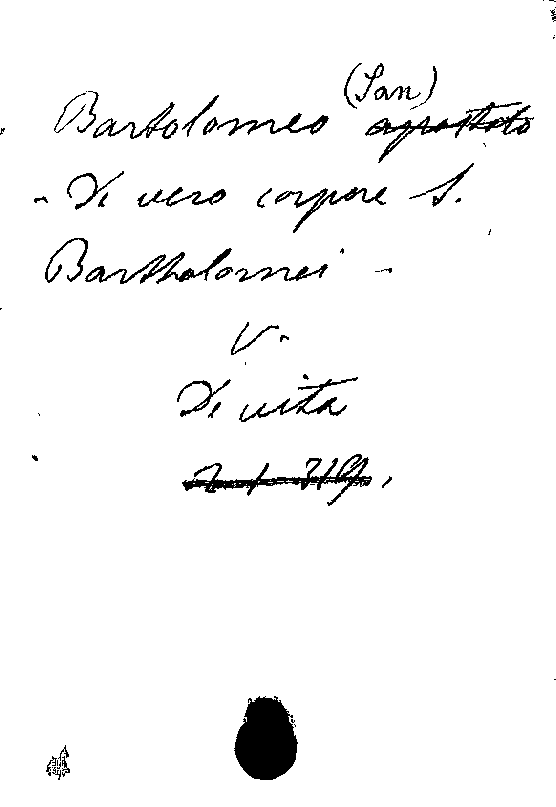 Bartolomeo (San) apostolo
- De vero corpore S.
Bartholomei -
V.
De vita